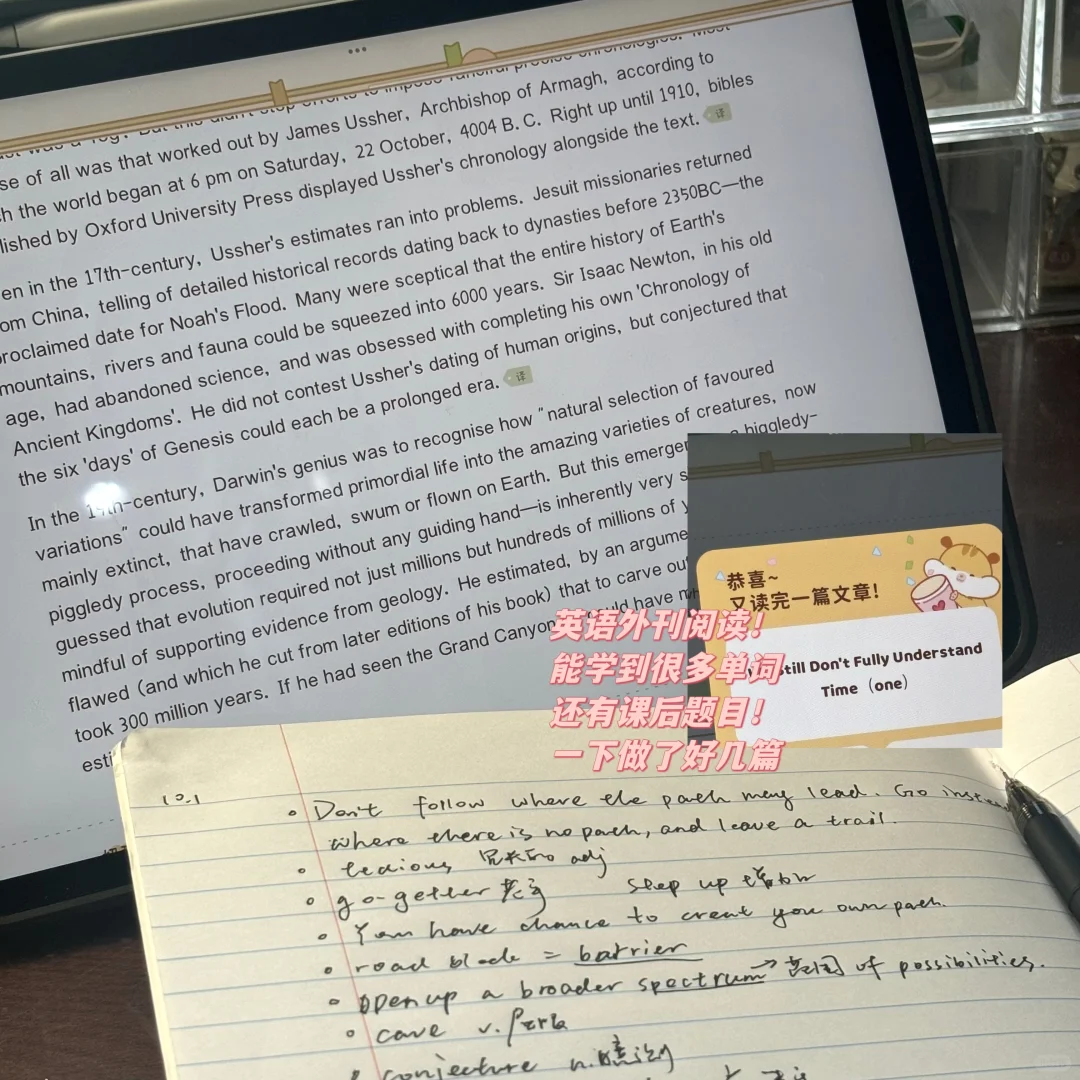 se of all was that worked out by James Ussher, Archbishop of Armagh, according to
ch the world began at 6 pm on Saturday, 22 October, 4004 B.C. Right up until 1910, bibles
lished by Oxford University Press displayed Ussher's chronology alongside the text. 译
en in the 17th-century, Ussher's estimates ran into problems. Jesuit missionaries returned
om China, telling of detailed historical records dating back to dynasties before 2350BC—the
proclaimed date for Noah's Flood. Many were sceptical that the entire history of Earth's
mountains, rivers and fauna could be squeezed into 6000 years. Sir Isaac Newton, in his old
age, had abandoned science, and was obsessed with completing his own 'Chronology of
Ancient Kingdoms'. He did not contest Ussher's dating of human origins, but conjectured that
the six 'days' of Genesis could each be a prolonged era. 译
In the 19th-century, Darwin's genius was to recognise how "natural selection of favoured
variations" could have transformed primordial life into the amazing varieties of creatures, now
mainly extinct, that have crawled, swum or flown on Earth. But this emerge higgledy-
piggledy process, proceeding without any guiding hand—is inherently very s
guessed that evolution required not just millions but hundreds of millions of y
mindful of supporting evidence from geology. He estimated, by an argume
flawed (and which he cut from later editions of his book) that to carve ou
took 300 million years. If he had seen the Grand Canyon could have
esti
恭喜~
又读完一篇文章!
Still Don't Fully Understand
Time (one)
英语外刊阅读!
能学到很多单词
还有课后题目!
一下做了好几篇
10.1
Don't follow where the path may lead. Go instead
where there is no path, and leave a trail.
tedious 冗长的 adj
go-getter step up
You have chance to creat you own path.
road block = barrier
open up a broader spectrum → 范围 of possibilities.
cave v.
conjecture n.猜测